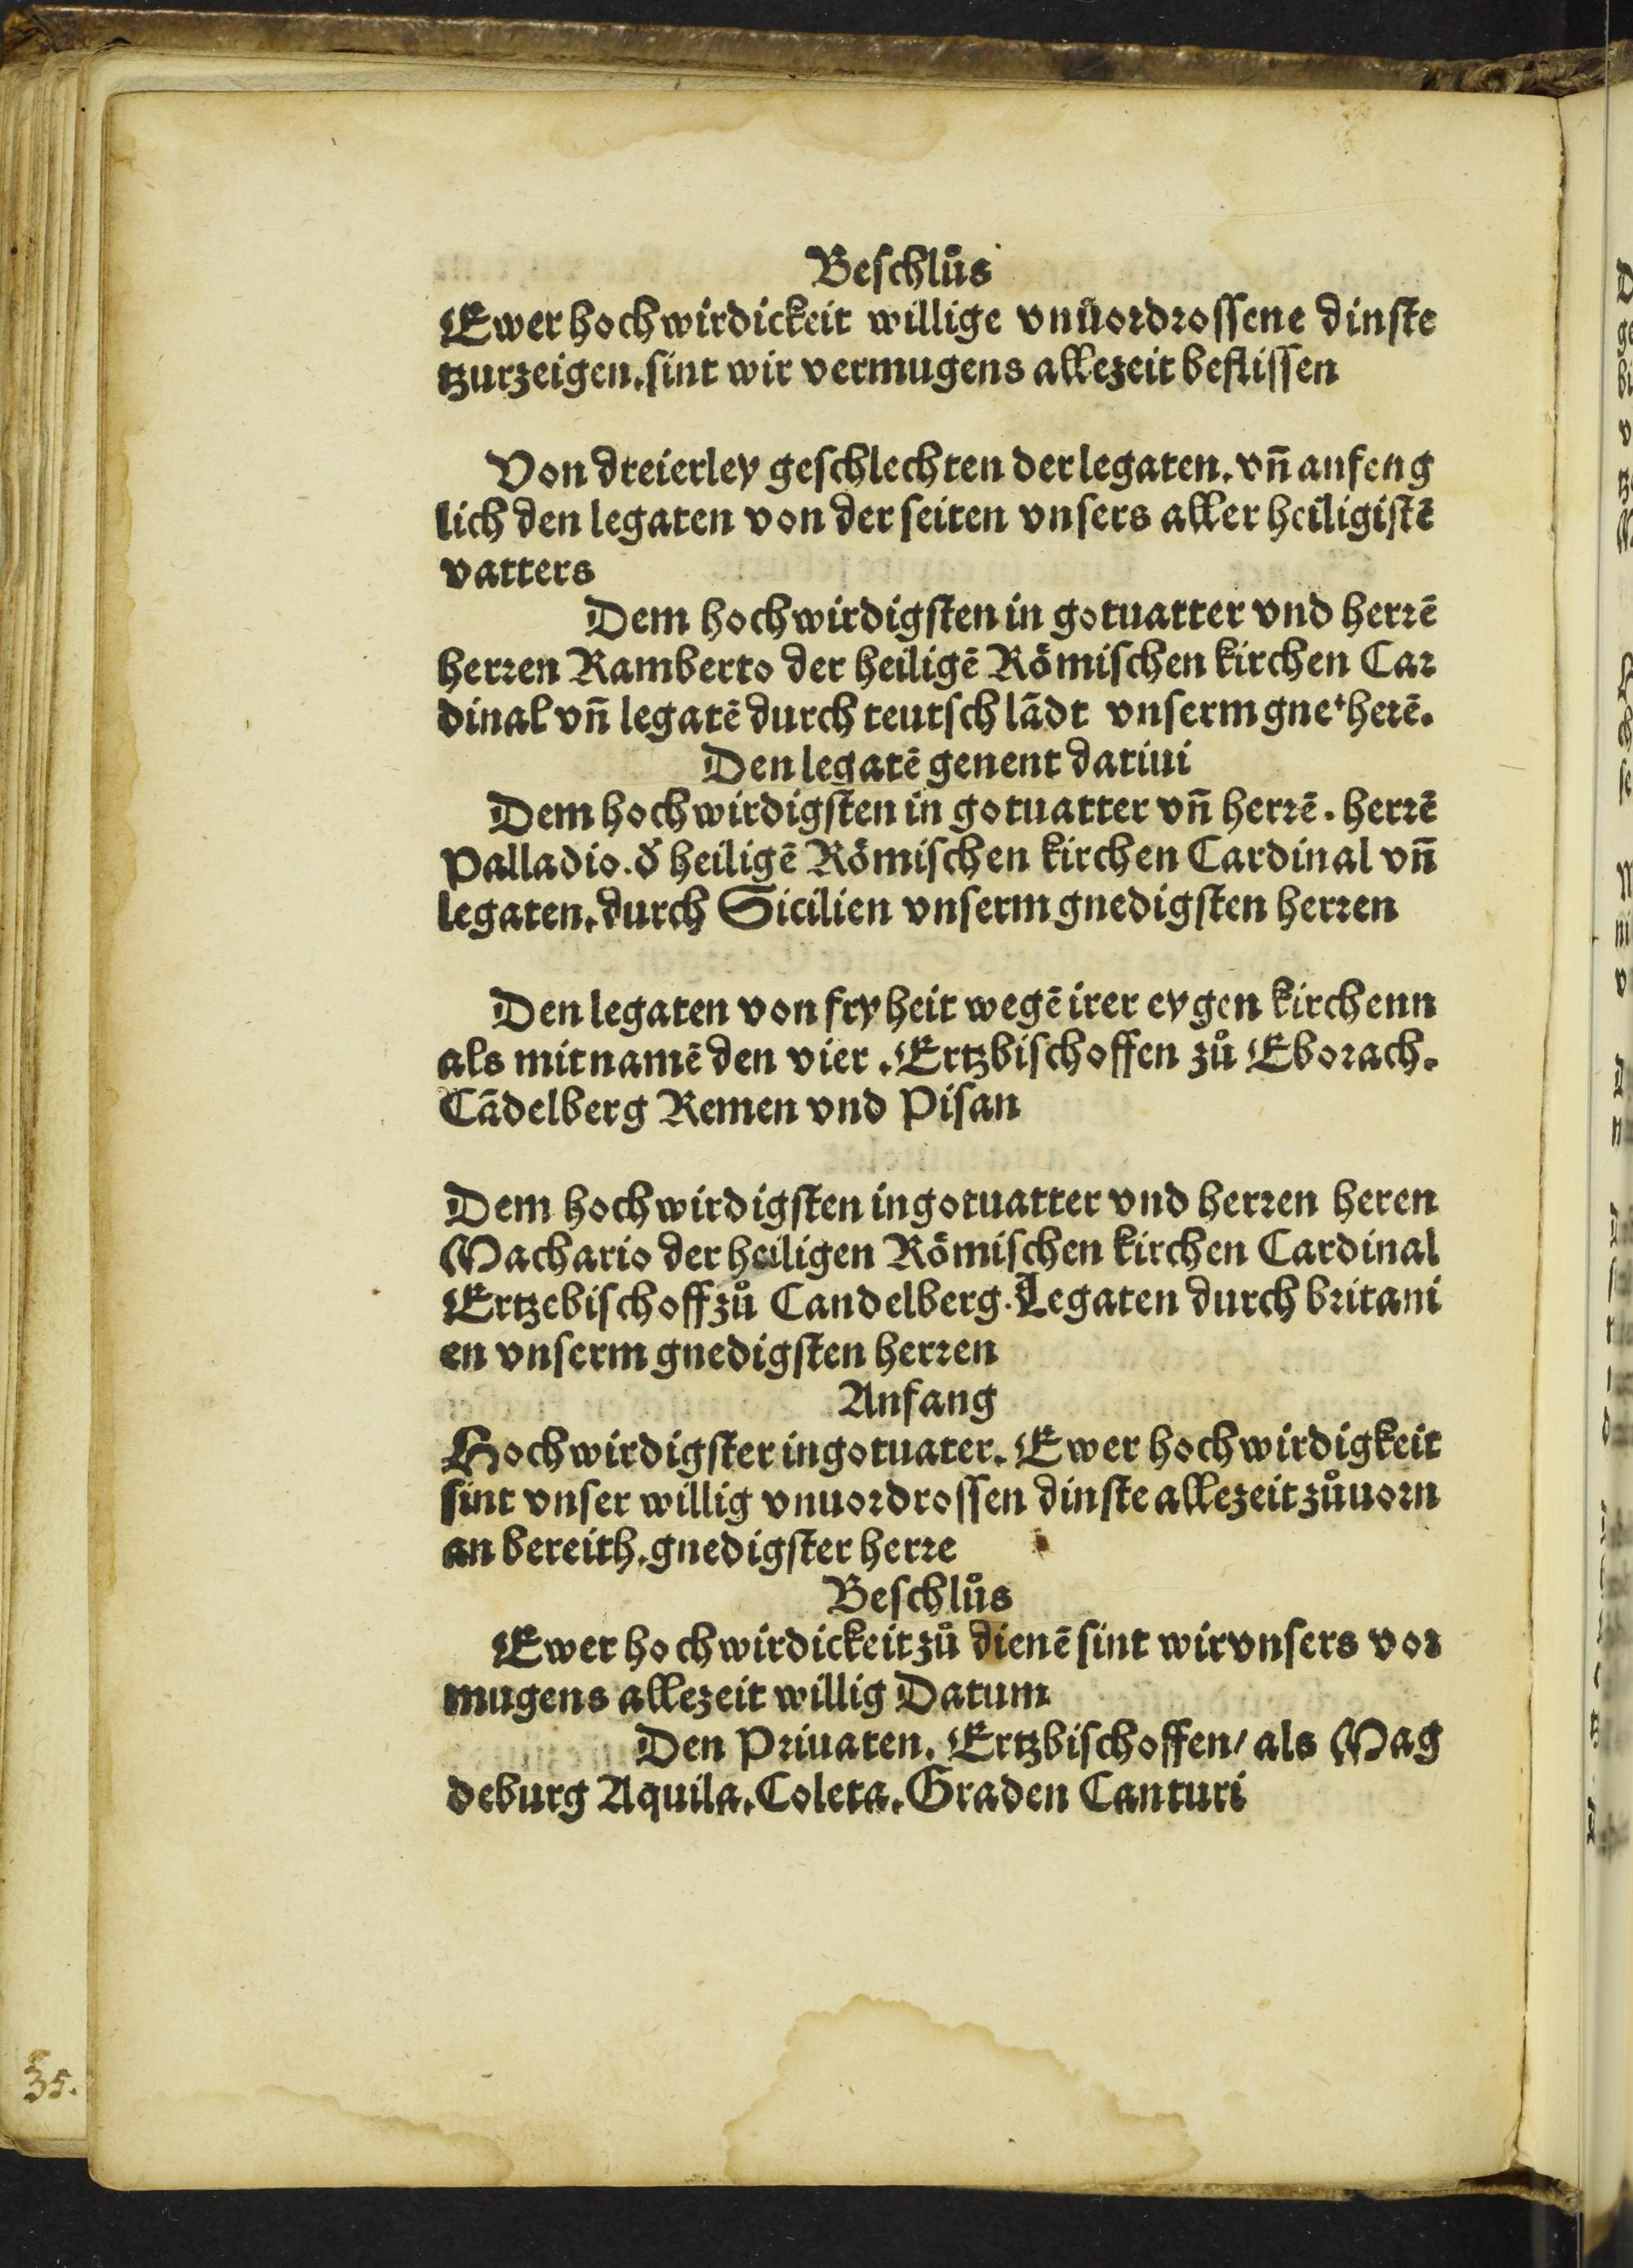 Beschlůs
Ewer hochwirdickeit willige vnůordrossene dinste
tzurzeigen. sint wir vermugens allezeit beflissen
Von dreierley geschlechten der legaten. vn̄ anfeng
lich den legaten von der seiten vnsers aller heiligistē
vatters
Dem hochwirdigsten in gotuatter vnd herrē
herren Ramberto der heiligē Römischen kirchen Car
dinal vn̄ legatē durch teutsch lādt vnserm gne⁺ herē.
Den legatē genent datiui
Dem hochwirdigsten in gotuatter vn̄ herrē. herrē
Palladio.ď heiligē Römischen kirchen Cardinal vn̄
legaten. durch Sicilien vnserm gnedigsten herren
Den legaten von fryheit wegē irer eygen kirchenn
als mit namē den vier. Ertzbischoffen zů Eborach.
Cādelberg Remen vnd Pisan
Dem hochwirdigsten in gotuatter vnd herren heren
Machario der heiligen Römischen kirchen Cardinal
Ertzebischoff zů Candelberg. Legaten durch britani
en vnserm gnedigsten herren
Anfang
Hochwirdigster in gotuater. Ewer hochwirdigkeit
sint vnser willig vnuordrossen dinste allezeit zůuorn
an bereith. gnedigster herre
Beschlůs
Ewer hochwirdickeit zů dienē sint wir vnsers vor
mugens allezeit willig Datum
Den Priuaten. Ertzbischoffen/ als Mag
deburg Aquila. Coleta. Graden Canturi
35.